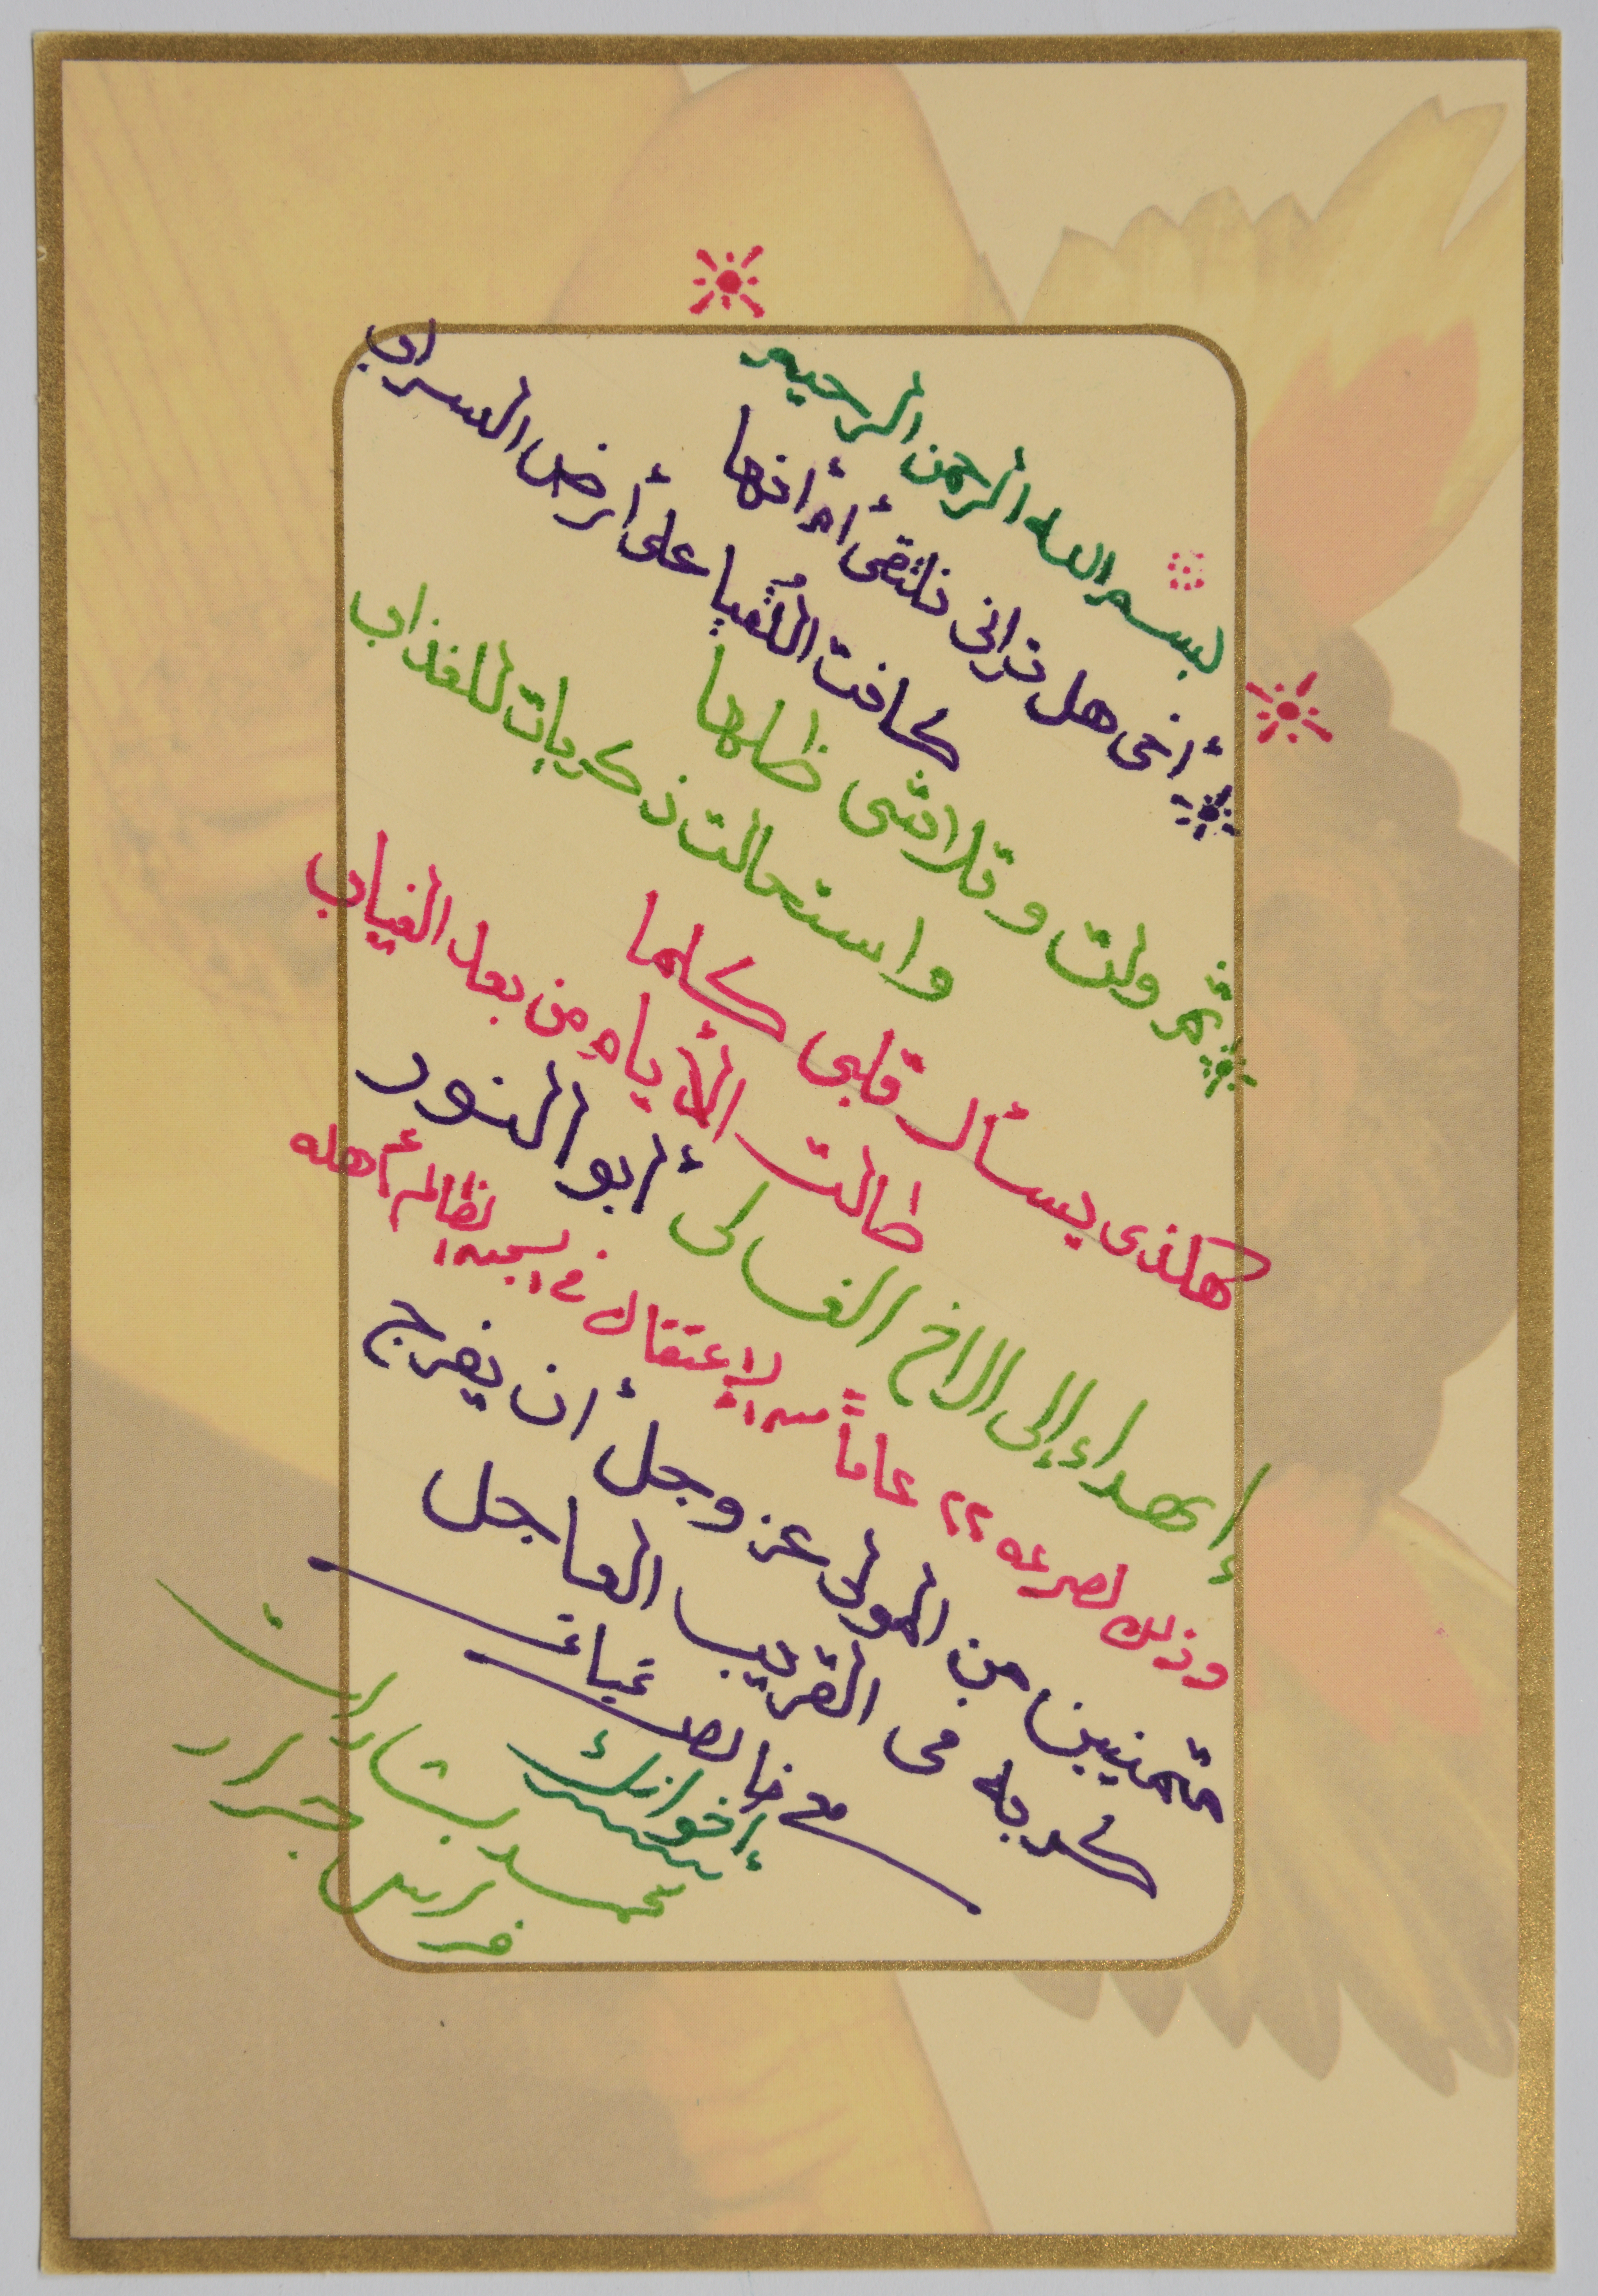 بسم الله الرحمن الرحيم
أخي هل ترانى نلتقى أم انها
كانت اللُقيا على أرض السراب
ثم ولت وتلاشى ظلها
واستحالت ذكريات للعذاب
هكذى يسأل قلبى كلما
طالت الأيام من بعد الغياب
إهداء إلى الاخ الغالى أبو النور
وذلك لمرور ٢٢ عاماً من الإعتقال في السجن الظالم أهله
متمنيين من المولى عز وجل أن يفرج
كربه فى القريب العاجل
مع خالص
أخوانك
محمد بشارات
فراس جرار